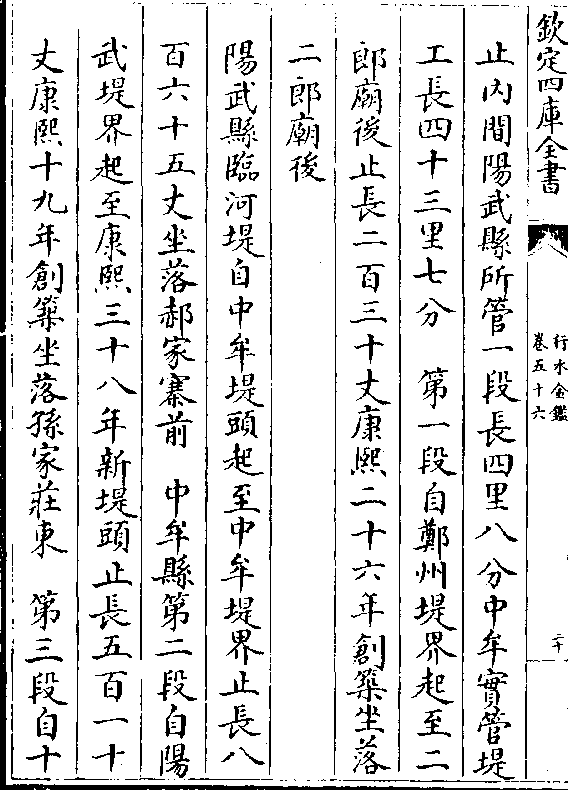 欽定四庫全書
行水金鑑
卷五十六
二十
止内間陽武縣所管一段長四里八分中牟實管堤
工長四十三里七分　第一段自鄭州堤界起至二
郎廟後止長二百三十丈康熙二十六年創築坐落
二郎廟後
陽武縣臨河堤自中牟堤頭起至中牟堤界止長八
百六十五丈坐落郝家寨前　中牟縣第二段自陽
武堤界起至康熙三十八年新堤頭止長五百一十
丈康熙十九年創築坐落孫家莊東　第三段自十